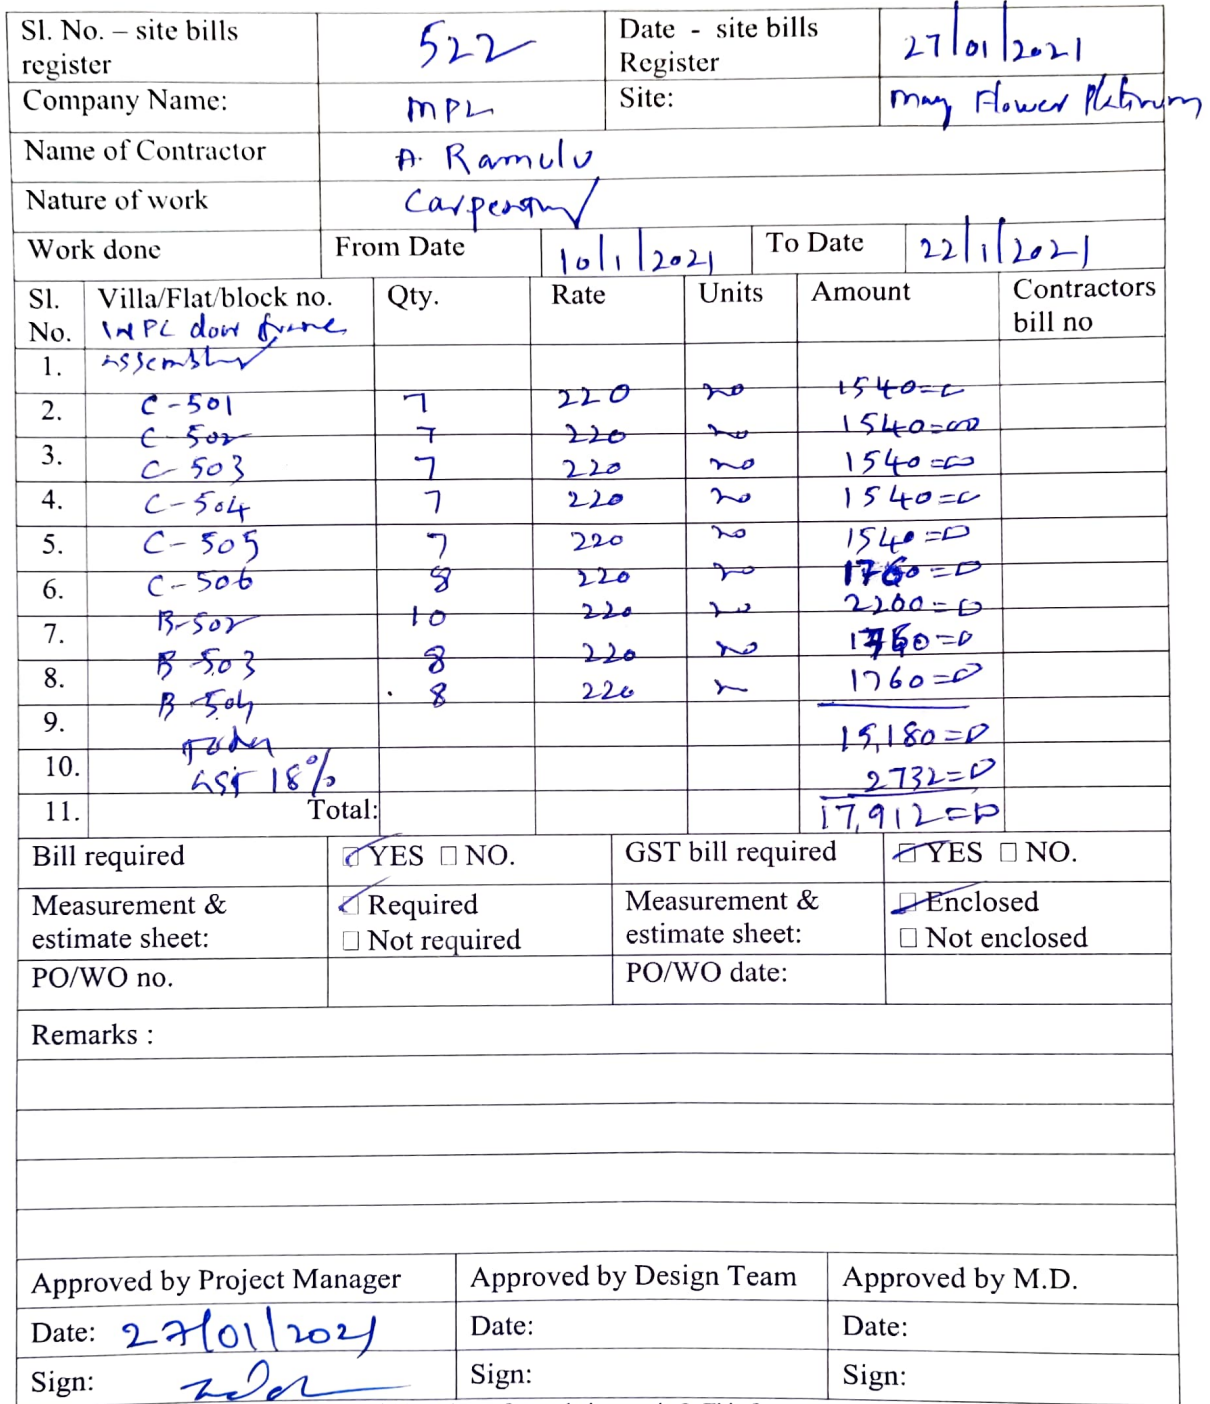 Sl. No. – site bills register 522 Date - site bills Register 27/01/2021
Company Name: MPL Site: May Flower Platinum
Name of Contractor A. Ramulu
Nature of work Carpentry
Work done From Date 10/1/2021 To Date 22/1/2021
Sl. No. Villa/Flat/block no. Qty. Rate Units Amount Contractors bill no
WPC door frame
1. assembly
2. C-501 7 220 no 1540=0
C-502 7 220 no 1540=00
3. C-503 7 220 no 1540=00
4. C-504 7 220 no 1540=0
5. C-505 7 220 no 1540=0
6. C-506 8 220 no 1760=0
B-502 10 220 no 2200=0
7.
B-503 8 220 no 1760=0
8.
B-504 8 220 no 1760=0
9.
15,180=0
10. GST 18% 2732=0
11. Total: 17,912=0
Bill required YES NO. GST bill required YES NO.
Measurement & estimate sheet: Required Not required Measurement & estimate sheet: Enclosed Not enclosed
PO/WO no. PO/WO date:
Remarks :
Approved by Project Manager Approved by Design Team Approved by M.D.
Date: 27/01/2021 Date: Date:
Sign: Sign: Sign: